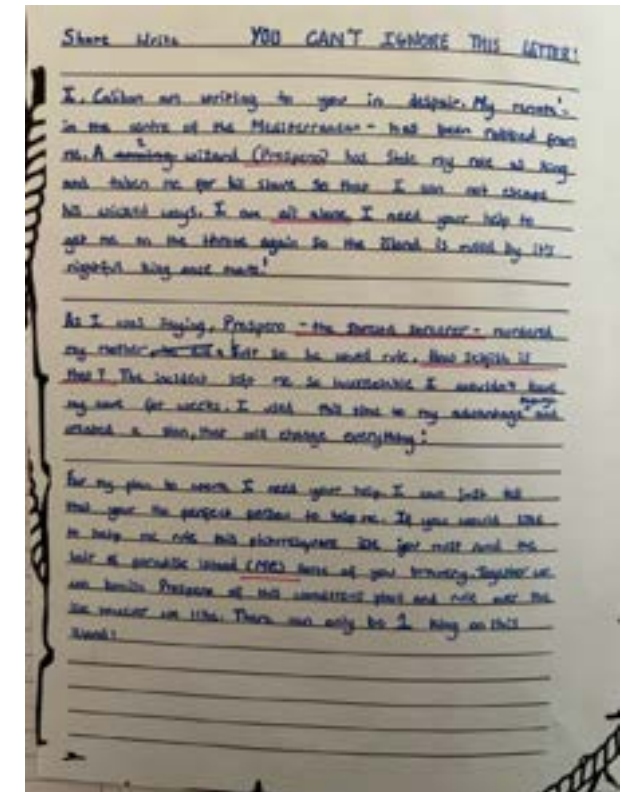 Share Write YOU CAN'T IGNORE THIS LETTER!
I, Caliban am writing to you in despair. My
in the centre of the Mediterranean - has been robbed from
me. A wizard (Prospero) has stole my role as king
and taken me for his slave so that I can not escape
his wicked ways. I am all alone. I need your help to
get me on the throne again so the island is ruled by it's
rightful king once more!
As I was saying, Prospero - the sorcerer - murdered
my mother, just so he would rule. How selfish is
that? The incident left me so I wouldn't leave
my cave for weeks. I used this time to my advantage and
created a plan, that will change everything:
For my plan to work I need your help. I can just tell
that your the perfect person to help me. If you would like
to help me rule this picturesque isle you must send the
of paradise island (ME) some of your Together we
can banish Prospero of this wondrous place and rule over the
isle we like. There can only be 1 king on this
island!